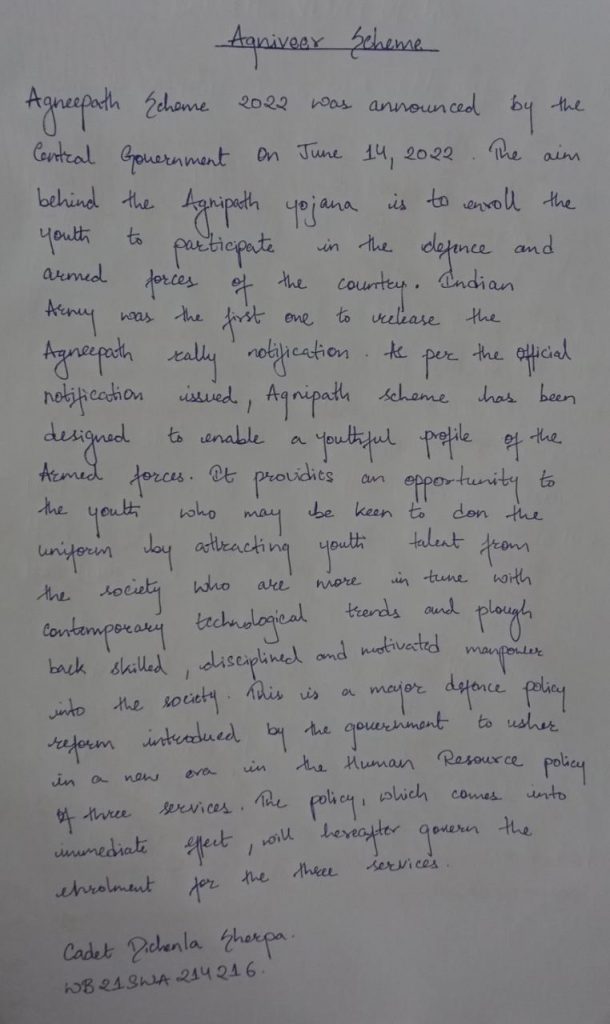 Agniveer Scheme
Agneepath Scheme 2022 was announced by the
Central Government On June 14, 2022. The aim
behind the Agnipath yojana is to enroll the
youth to participate in the defence and
armed forces of the country. Indian
Army was the first one to release the
Agneepath rally notification. As per the official
notification issued, Agnipath scheme has been
designed to enable a youthful profile of the
Armed forces. It providies an opportunity to
the youth who may be keen to don the
uniform by attracting youth talent from
the society who are more in tune with
contemporary technological trends and plough
back skilled, disciplined and motivated manpower
into the society. This is a major defence policy
reform introduced by the government to usher
in a new era in the Human Resource policy
of three services. The policy, which comes into
immediate effect, will hereafter govern the
enrolment for the three services.
Cadet Dichenla Sherpa.
WB21SWA214216.